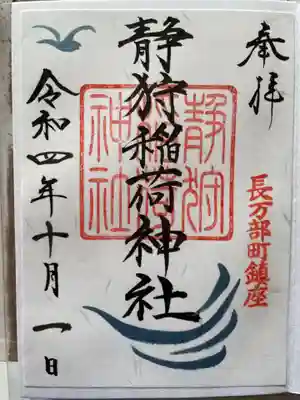 奉拝
長万部町鎮座
静狩稲荷神社
静狩稲荷神社
令和四年十月一日